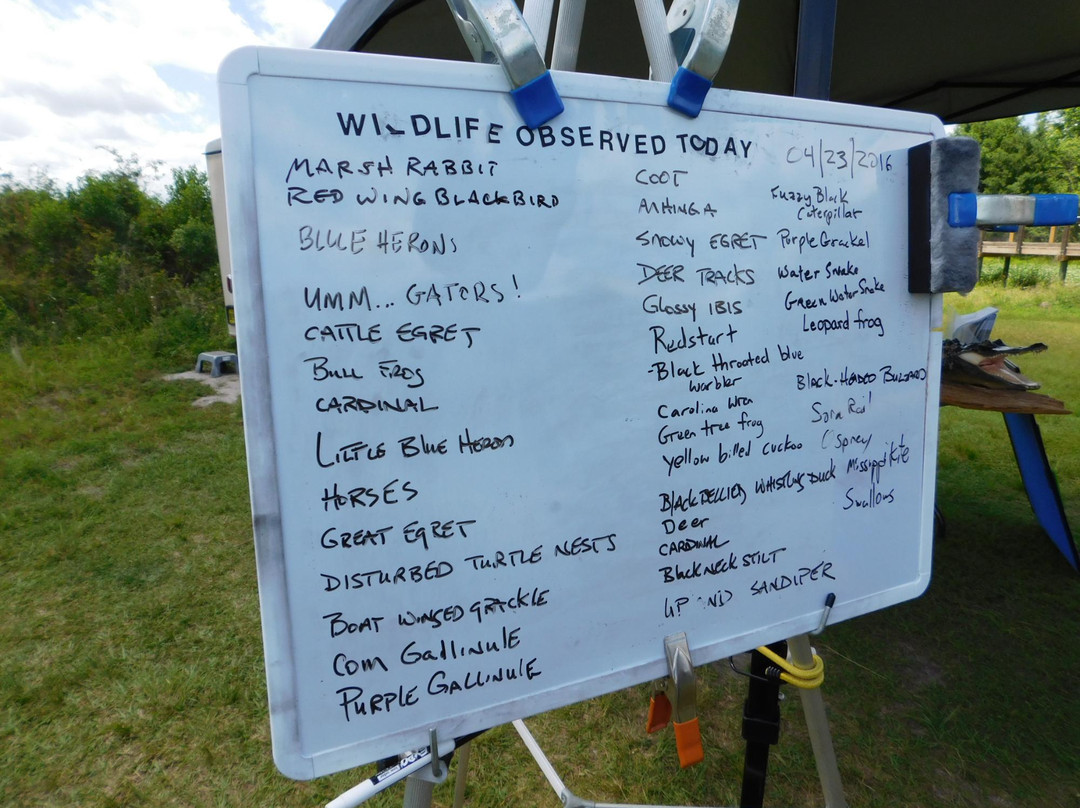 WILDLIFE OBSERVED TODAY
04/23/2016
MARSH RABBIT
RED WING BLACKBIRD
BLUE HERONS
UMM... GATORS!
CATTLE EGRET
BULL FROG
CARDINAL
LITTLE BLUE HERON
HORSES
GREAT EGRET
DISTURBED TURTLE NESTS
BOAT WINGED GRACKLE
COM GALLINULE
PURPLE GALLINULE
COOT
ANHINGA
SNOWY EGRET
DEER TRACKS
Glossy IBIS
Redstart
Black throated blue
warbler
Carolina wren
Green tree frog
yellow billed cuckoo
BLACK BELLIED WHISTLING DUCK
Deer
CARDINAL
BLACK NECK STILT
SANDIPER
Fuzzy Black
Caterpillar
Purple Grackel
Water Snake
Green Water Snake
Leopard frog
BLACK-HEADED BUZZARD
Sora Rail
Osprey
Mississippi Kite
Swallows